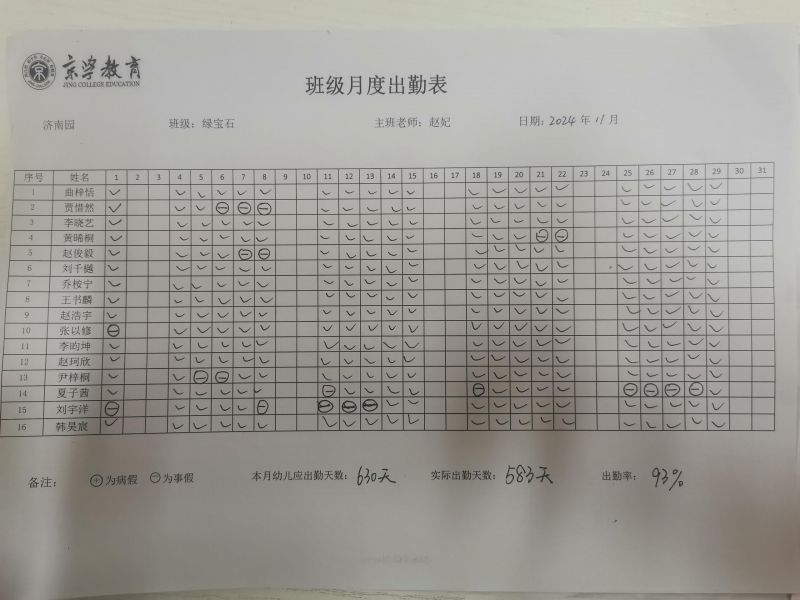 京学教育
JING COLLEGE EDUCATION
班级月度出勤表
济南园 班级：绿宝石 主班老师：赵妃 日期：2024年11月
序号 姓名 1 2 3 4 5 6 7 8 9 10 11 12 13 14 15 16 17 18 19 20 21 22 23 24 25 26 27 28 29 30 31
1 曲梓恬 ✓ ✓ ✓ ✓ ✓ ✓ ✓ ✓ ✓ ✓ ✓ ✓ ✓ ✓ ✓ ✓ ✓ ✓ ✓ ✓ ✓
2 贾惜然 ✓ ✓ ✓ ⊖ ⊖ ⊖ ✓ ✓ ✓ ✓ ✓ ✓ ✓ ✓ ✓ ✓ ✓ ✓ ✓ ✓ ✓
3 李晓艺 ✓ ✓ ✓ ✓ ✓ ✓ ✓ ✓ ✓ ✓ ✓ ✓ ✓ ✓ ✓ ✓ ✓ ✓ ✓ ✓ ✓
4 黄晞桐 ✓ ✓ ✓ ✓ ✓ ✓ ✓ ✓ ✓ ✓ ✓ ✓ ✓ ✓ ⊖ ⊖ ✓ ✓ ✓ ✓ ✓
5 赵俊毅 ✓ ✓ ✓ ✓ ⊖ ⊖ ✓ ✓ ✓ ✓ ✓ ✓ ✓ ✓ ✓ ✓ ✓ ✓ ✓ ✓ ✓
6 刘千樾 ✓ ✓ ✓ ✓ ✓ ✓ ✓ ✓ ✓ ✓ ✓ ✓ ✓ ✓ ✓ ✓ ✓ ✓ ✓ ✓ ✓
7 乔桉宁 ✓ ✓ ✓ ✓ ✓ ✓ ✓ ✓ ✓ ✓ ✓ ✓ ✓ ✓ ✓ ✓ ✓ ✓ ✓ ✓ ✓
8 王书麟 ✓ ✓ ✓ ✓ ✓ ✓ ✓ ✓ ✓ ✓ ✓ ✓ ✓ ✓ ✓ ✓ ✓ ✓ ✓ ✓ ✓
9 赵浩宇 ✓ ✓ ✓ ✓ ✓ ✓ ✓ ✓ ✓ ✓ ✓ ✓ ✓ ✓ ✓ ✓ ✓ ✓ ✓ ✓ ✓
10 张以修 ⊖ ✓ ✓ ✓ ✓ ✓ ✓ ✓ ✓ ✓ ✓ ✓ ✓ ✓ ✓ ✓ ✓ ✓ ✓ ✓ ✓
11 李昀坤 ✓ ✓ ✓ ✓ ✓ ✓ ✓ ✓ ✓ ✓ ✓ ✓ ✓ ✓ ✓ ✓ ✓ ✓ ✓ ✓ ✓
12 赵珂欣 ✓ ✓ ✓ ✓ ✓ ✓ ✓ ✓ ✓ ✓ ✓ ✓ ✓ ✓ ✓ ✓ ✓ ✓ ✓ ✓ ✓
13 尹梓桐 ✓ ✓ ⊖ ⊖ ✓ ✓ ✓ ✓ ✓ ✓ ✓ ✓ ✓ ✓ ✓ ✓ ✓ ✓ ✓ ✓ ✓
14 夏子茜 ✓ ✓ ✓ ✓ ✓ ✓ ⊖ ✓ ✓ ✓ ✓ ⊖ ✓ ✓ ✓ ✓ ⊖ ⊖ ⊖ ⊖ ✓
15 刘宇洋 ⊖ ✓ ✓ ✓ ✓ ⊖ ⊖ ⊖ ⊖ ✓ ✓ ✓ ✓ ✓ ✓ ✓ ✓ ✓ ✓ ✓ ✓
16 韩昊宸 ✓ ✓ ✓ ✓ ✓ ✓ ✓ ✓ ✓ ✓ ✓ ✓ ✓ ✓ ✓ ✓ ✓ ✓ ✓ ✓ ✓
备注： ⊕为病假 ⊖为事假 本月幼儿应出勤天数：630天 实际出勤天数：583天 出勤率：93%